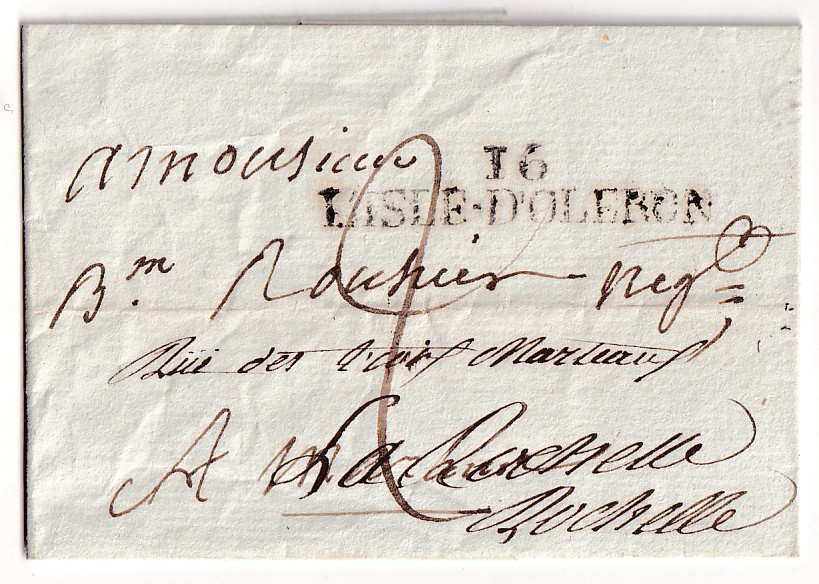 16
L'ISLE-D'OLERON
A monsieur
B.m Rouhier neg.
Rüe des trois Marteaux
A La
Rochelle